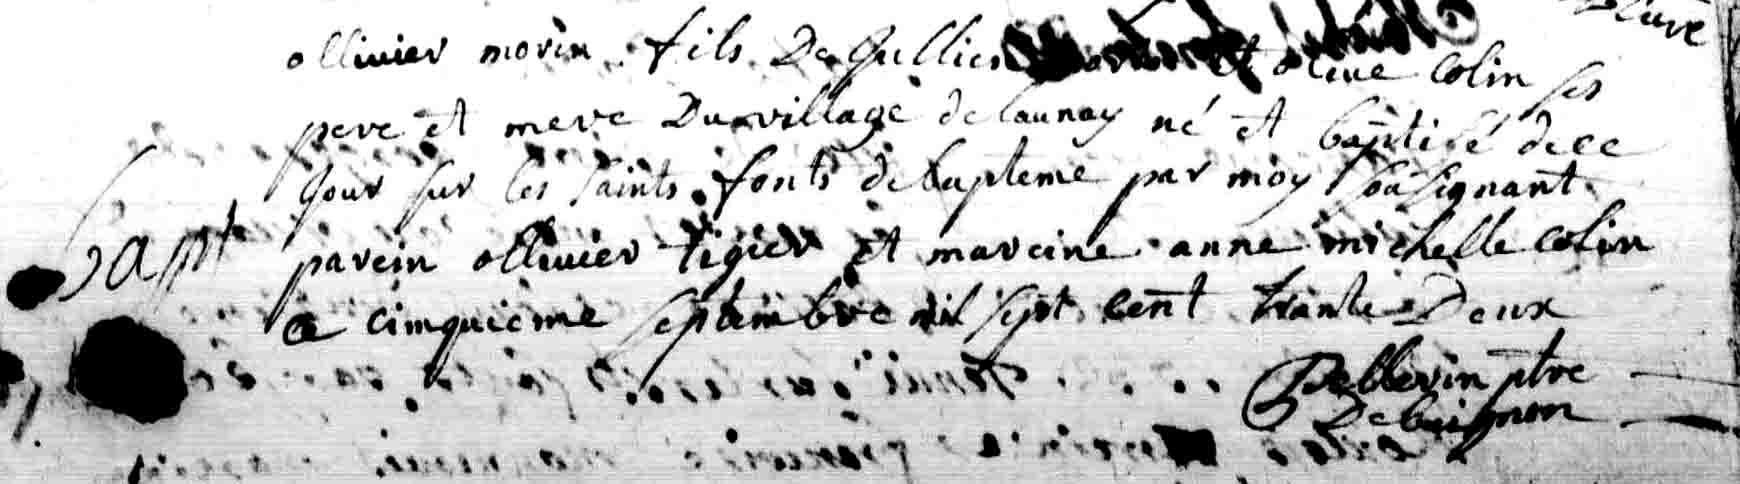 ollivier morin fils De Jullien et olive colin ses
pere et mere Du village de launay né et baptisé de ce
Jour sur les saints fonts de bapteme par moy soûsignant
Bapt parein ollivier tigier et mareine anne michelle colin
ce cimquieme septembre mil sept cent trante Deux
Pellerin ptre